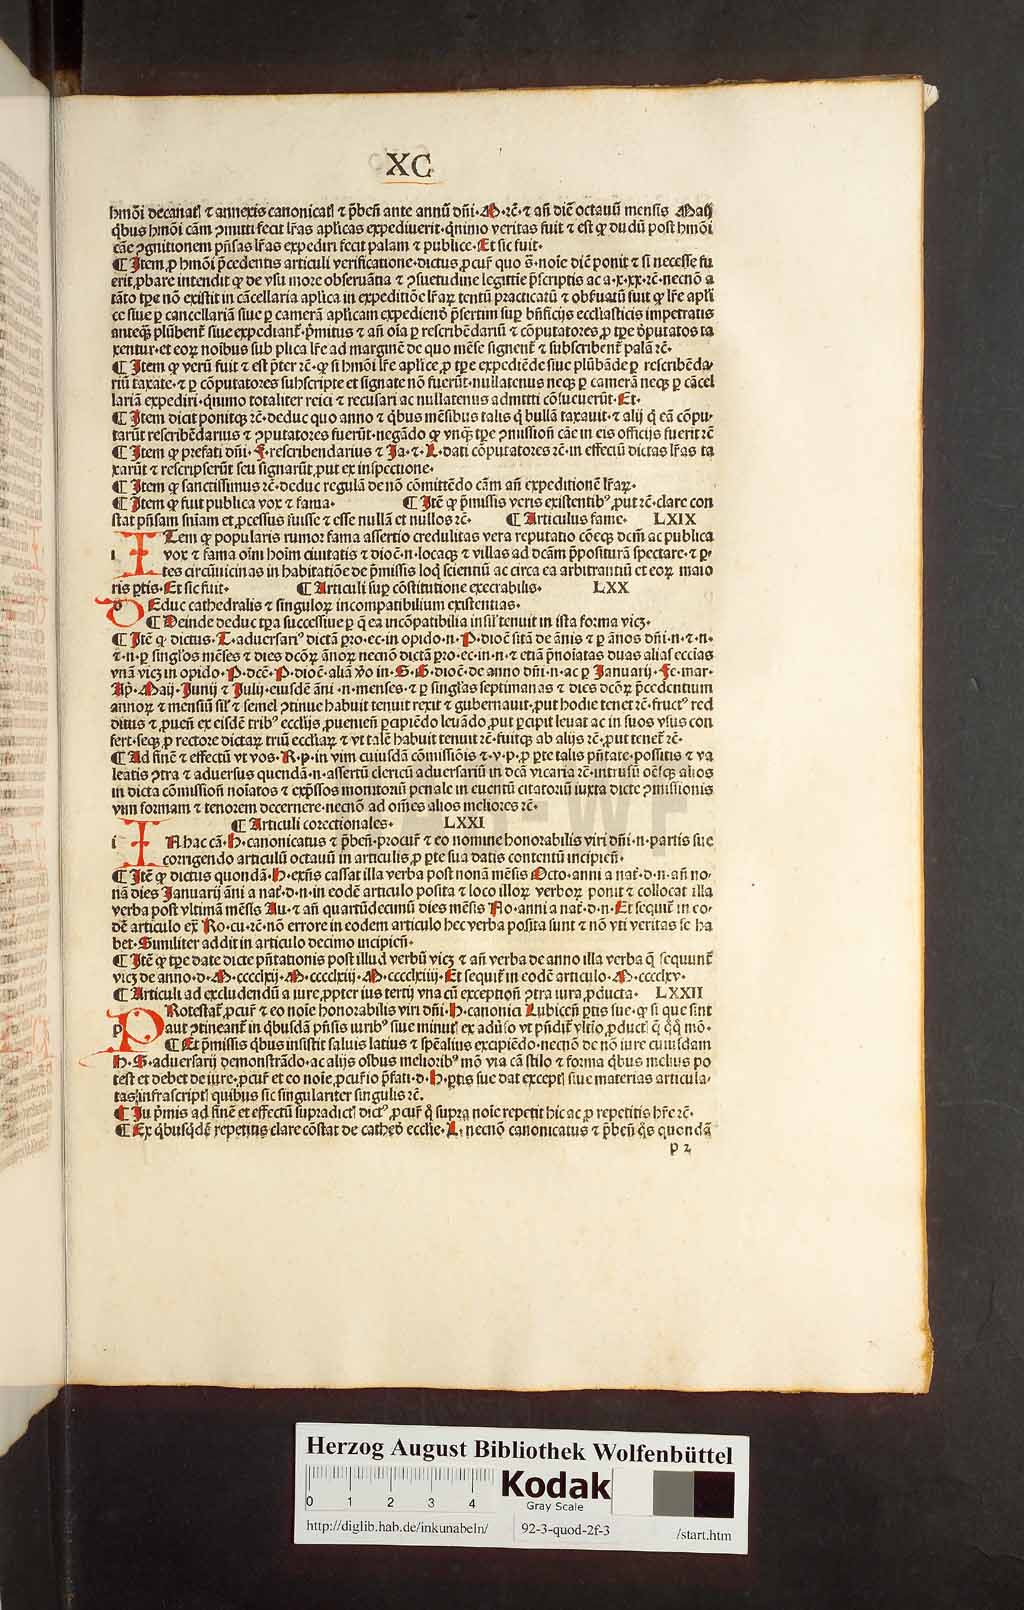 XC
hmōi decanatꝰ ⁊ annexis canonicatꝰ ⁊ p̄beñ ante annū dñi·M·rē·⁊ añ diē octauū mensis Maij
q̄bus hmōi cām ꝯmitti fecit lr̄as aplicas expediuerit·q̄nimo veritas fuit ⁊ est ꝙ du dū post hmōi
cāe ꝯgnitionem p̄nsas lr̄as expediri fecit palam ⁊ publice·Et sic fuit·
¶ Item ꝓ hmōi p̄cedentis articuli verificatione·dictus ꝓcur̄ quo s̄·noīe diē ponit ⁊ si necesse fu
erit ꝓbare intendit ꝙ de vsu more obseruātia ⁊ ꝯsuetudine legittie p̄scriptis ac a·x·xx·rē·necnō a
tāto tꝑe nō existit in cācellaria aplica in expeditiōe lr̄aꝝ tentū practicatū ⁊ obseruatū fuit ꝙ lr̄e apli
ce siue ꝑ cancellariā siue ꝑ camerā aplicam expediend̄ p̄sertim suꝑ bñficijs ecclāsticis impetratis
anteqꝫ plūbent̄ siue expediant̄·p̄mitus ⁊ añ oīa ꝑ rescribēdariū ⁊ cōputatores ꝓ tꝑe d̄putatos ta
xentur·et eoꝝ noībus sub plica lr̄e ad marginē de quo mēse signent̄ ⁊ subscribent̄ palā rē·
¶ Item ꝙ verū fuit ⁊ est p̄ter rē·ꝙ si hmōi lr̄e aplice ꝓ tꝑe expediēde siue plūbāde ꝑ rescribēda·
riū taxate·⁊ ꝑ cōputatores subscripte et signate nō fuerūt·nullatenus neqꝫ ꝑ camerā neqꝫ ꝑ cācel
lariā expediri·q̄nimo totaliter reici ⁊ recusari ac nullatenus admitti cōsueuerūt·Et·
¶ Item dicit ponitqꝫ rē·deduc quo anno ⁊ q̄bus mēsibus talis q̄ bullā taxauit·⁊ alij q̄ eā cōpu·
tarūt rescribēdarius ⁊ ꝯputatores fuerūt·negādo ꝙ vnqꝫ tꝑe ꝯmission̄ cāe in eis officijs fuerit rē
¶ Item ꝙ prefati dñi·F·rescribendarius ⁊ Ja·⁊·L·dati cōputatores rē·in effectū dictas lr̄as ta
xarūt ⁊ rescripserūt seu signarūt ꝓut ex inspectione·
¶ Item ꝙ sanctissimus rē·deduc regulā de nō cōmittēdo cām añ expeditionē lr̄aꝝ·
¶ Item ꝙ fuit publica vox ⁊ fama· ¶ Itē ꝙ p̄missis veris existentibꝰ ꝓut rē·clare con
stat p̄nsam sn̄iam et ꝓcessus fuisse ⁊ esse nullā et nullos rē· ¶ Articulus fame· LXIX
i ITem ꝙ popularis rumor fama assertio credulitas vera reputatio cōeqꝫ dcm̄ ac publica
vox ⁊ fama oīm hoīm ciuitatis ⁊ dioc̄·n·locaqꝫ ⁊ villas ad dcām p̄positurā spectare·⁊ ꝑ·
tes circūuicinas in habitatiōe de p̄missis loq̄ scientiū ac circa ea arbitrantiū et eoꝝ maio
ris ꝑtis·Et sic fuit· ¶ Articuli suꝑ cōstitutione execrabilis· LXX
DEduc cathedralis ⁊ singuloꝝ incompatibilium existentias·
¶ Deinde deduc tꝑa successiue ꝑ q̄ ea incōpatibilia insil̄ tenuit in ista forma vicꝫ·
¶ Itē ꝙ dictus·T·aduersariꝰ dictā pro·ec·in opido·n·P·dioc̄ sitā de ānis ⁊ ꝑ ānos dñi·n·⁊·n·
⁊·n·ꝑ singlos mēses ⁊ dies dcōꝝ ānoꝝ necnō dictā pro·ec·in·n·⁊ etiā p̄noīatas duas alias eccias
vnā vicꝫ in opido·P·dcē·P·dioc̄·aliā vō in·S·S·dioc̄·de anno dñi·n·ac ꝑ Januarij·Fe·mar·
Ap̄·Maij·Junij ⁊ Julij·eiusdē āni·n·menses·⁊ ꝑ singlas septimanas ⁊ dies dcōꝝ p̄cedentium
annoꝝ ⁊ mensiū sil̄ ⁊ semel ꝯtinue habuit tenuit rexit ⁊ gubernauit·ꝓut hodie tenet rē·fructꝰ red
ditus ⁊ ꝓuen̄ ex eisdē tribꝰ ecclijs ꝓuenien̄ ꝑcipiēdo leuādo ꝓut ꝑcipit leuat ac in suos vsus con
fert·seqꝫ ꝓ rectore dictaꝝ triū eccliaꝝ ⁊ vt talē habuit tenuit rē·fuitqꝫ ab alijs rē·ꝓut tenet̄ rē·
¶ Ad finē ⁊ effectū vt vos·R·p·in vim cuiusdā cōmissiōis ⁊·v·p·ꝓ ꝑte talis p̄ntate·possitis ⁊ va
leatis ꝯtra ⁊ aduersus quendā·n·assertū clericū aduersariū in dcā vicaria rē·intrusū oēsqꝫ alios
in dicta cōmission̄ noīatos ⁊ exp̄ssos monitoriū penale in euentū citatoriū iuxta dicte ꝯmissionis
vim formam ⁊ tenorem decernere·necnō ad om̄es alios meliores rē·
¶ Articuli corectionales· LXXI
i IN hac cā·H·canonicatus ⁊ p̄ben̄·procur̄ ⁊ eo nomine honorabilis viri dñi·n·partis sue
corrigendo articulū octauū in articulis ꝓ ꝑte sua datis contentū incipien̄·
¶ Itē ꝙ dictus quondā·H·exn̄s cassat illa verba post nonā mēsis Octo·anni a nat̄·d·n·añ no·
nā dies Januarij āni a nat̄·d·n·in eodē articulo posita ⁊ loco illoꝝ verboꝝ ponit ⁊ collocat illa
verba post vltimā mēsis Au·⁊ añ quartūdecimū dies mēsis No·anni a nat̄·d·n·Et sequit̄ in eo·
dē articulo ex̄ Ro·cu·rē·nō errore in eodem articulo hec verba posita sunt ⁊ nō vti veritas se ha
bet·Similiter addit in articulo decimo incipien̄·
¶ Itē ꝙ tꝑe date dicte p̄ntationis post illud verbū vicꝫ ⁊ añ verba de anno illa verba q̄ sequunt̄
vicꝫ de anno·d·M·cccclxij·M·cccclxiij·M·cccclxiiij·Et sequit̄ in eodē articulo·M·cccclxv·
¶ Articuli ad excludendū a iure ꝓpter ius tertij vna cū exception̄ ꝯtra iura ꝓducta· LXXII
p PRotestat̄ ꝓcur̄ ⁊ eo noīe honorabilis viri dñi·H·canonici Lubicen̄ ꝑtis sue·ꝙ si que sint
aut ꝯtineant̄ in q̄busdā p̄nsis iuribꝰ siue minutꝰ ex adūso vt p̄ndit̄ vltīo ꝓductꝰ q̄ q̄q̄ mō·
¶ Et p̄missis q̄bus insistit saluis latius ⁊ sp̄ealius excipiēdo·necnō de nō iure cuiusdam
H·S·aduersarij demonstrādo·ac alijs oībus melioribꝰ mō via cā stilo ⁊ forma q̄bus melius po
test et debet de iure ꝓcur̄ et eo noīe ꝓcur̄io p̄fati·d·H·ꝑtis sue dat exceptꝰ siue materias articula·
tas infrascriptꝰ quibus sic singulariter singulis rē.
¶ Iu p̄mis ad finē et effectū supradictꝰ dictꝰ ꝓcur̄ q̄ supra noīe repetit hic ac ꝓ repetitis hr̄e rē·
¶ Ex q̄busq̄dē repetitis clare cōstat de cathed̄ ecclie·L·necnō canonicatus ⁊ p̄ben̄ q̄s quondā
p 2
Herzog August Bibliothek Wolfenbüttel
0 1 2 3 4
Kodak
Gray Scale
http://diglib.hab.de/inkunabeln/ 92-3-quod-2f-3 /start.htm